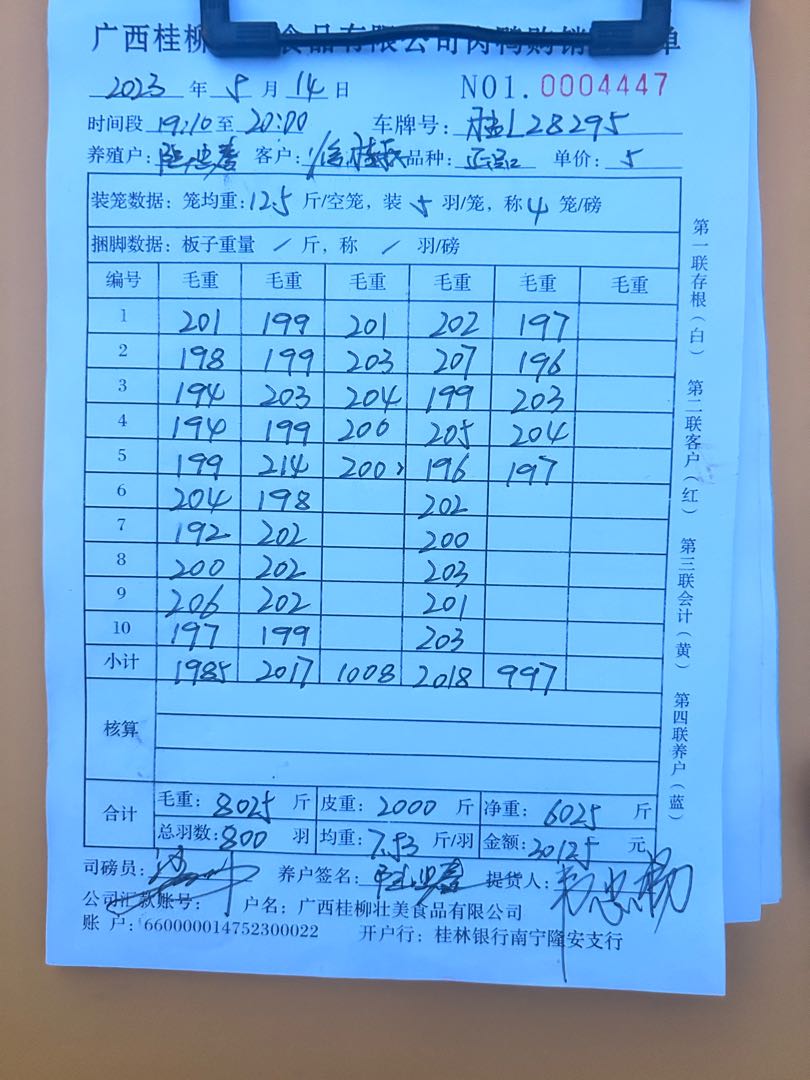 广西桂柳 食品有限公司肉鸭购销 单
2023 年 5 月 14 日 NO1. 0004447
时间段 19:10 至 20:00 车牌号: 桂L28295
养殖户: 客户: 品种: 单价: 5
装笼数据: 笼均重: 12.5 斤/空笼, 装 5 羽/笼, 称 4 笼/磅
捆脚数据: 板子重量 / 斤, 称 / 羽/磅
编号 毛重 毛重 毛重 毛重 毛重 毛重
1 201 199 201 202 197
2 198 199 203 207 196
3 194 203 204 199 203
4 194 199 200 205 204
5 199 214 200 196 197
6 204 198 202
7 192 202 200
8 200 202 203
9 206 202 201
10 197 199 203
小计 1985 2017 1008 2018 997
核算
合计 毛重: 8025 斤 皮重: 2000 斤 净重: 6025 斤
总羽数: 800 羽 均重: 7.53 斤/羽 金额: 30125 元
司磅员: 养户签名: 提货人:
公司汇款账号: 户名: 广西桂柳壮美食品有限公司
账 户: 660000014752300022 开户行: 桂林银行南宁隆安支行
第一联存根(白) 第二联客户(红) 第三联会计(黄) 第四联养户(蓝)